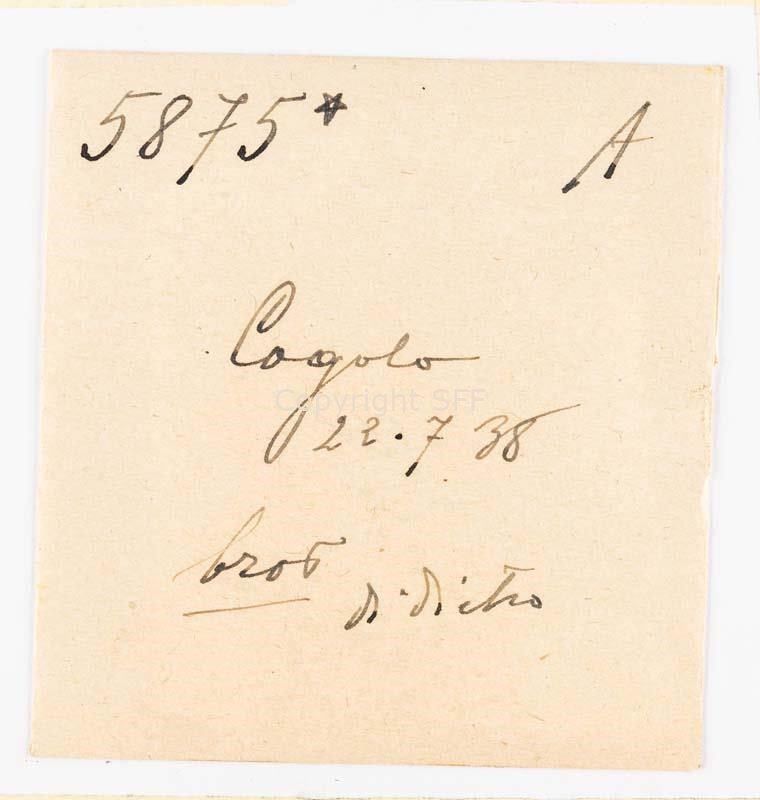 5875* A
Cogolo
Copyright SFF
22.7 38
broz
di dietro